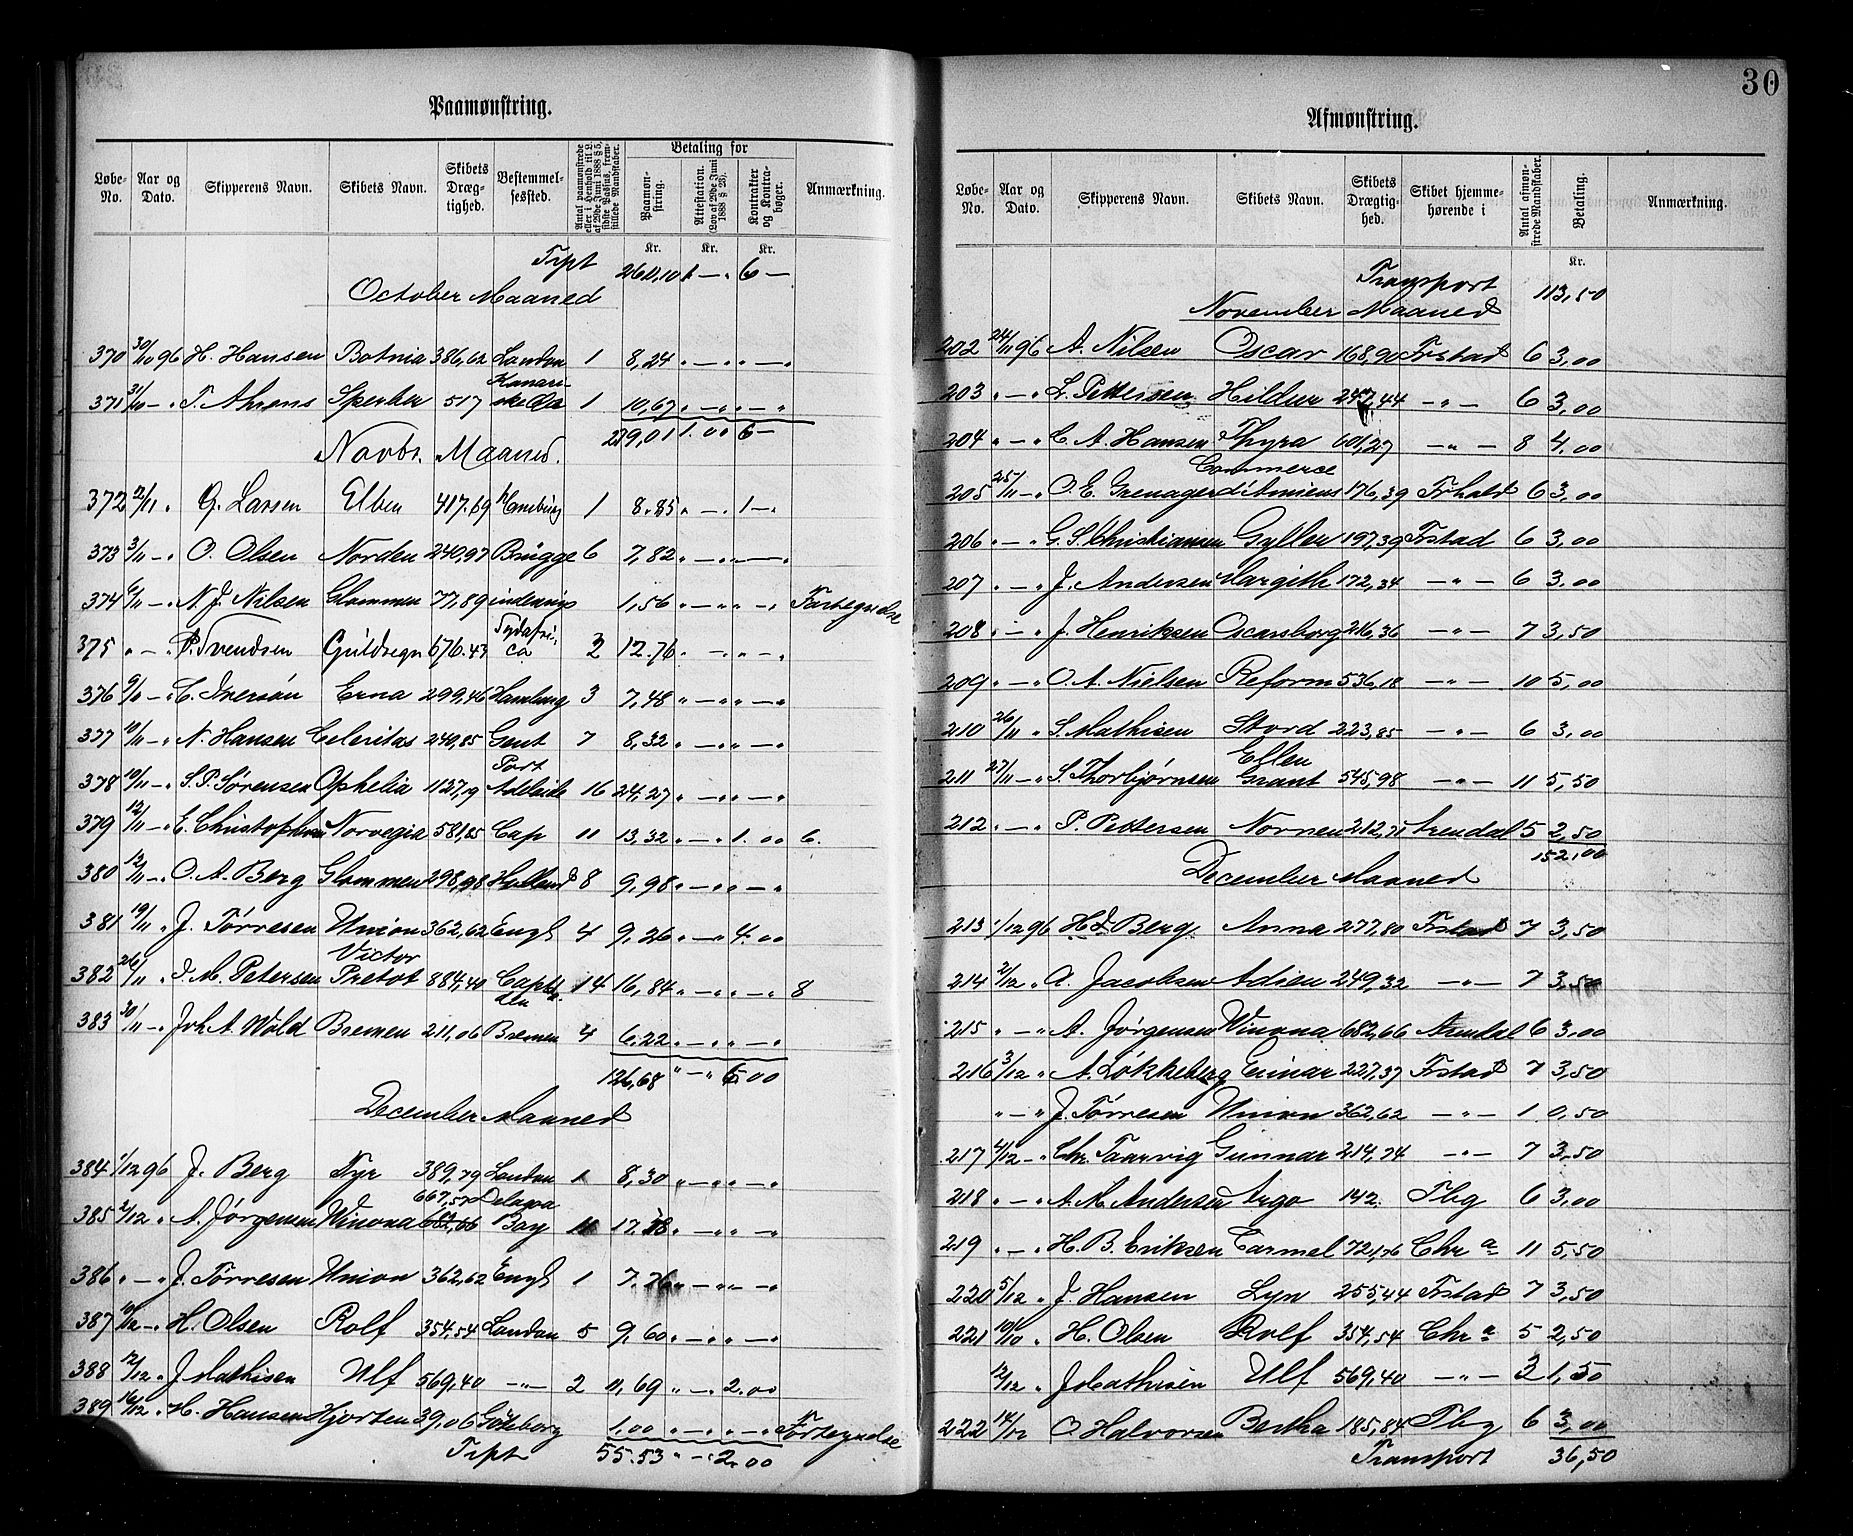 30
Paamønstring.
Løbe-No. Aar og Dato. Skipperens Navn. Skibets Navn. Skibets Dræg-tighed. Bestemmel-sessted. Antal paamønstrede eller i Henhold til L. af 29de Juni 1888 § 5, sidste Passus, frem-stillede Mandskaber. Betaling for Paamøn-string. Attestation. (Lov af 29de Juni 1888 § 23). Kontrakter og Kontra-bøger. Anmærkning.
Kr. Kr. Kr.
Trpt 260,10 1 — " 6 —
October Maaned
370 30/10 96 H. Hansen Botnia 386,62 London 1 8,24 " — " " — "
371 31/10 — " T. Ahrens Sperber 517 Kanari-ske Øer 1 10,67 " — " " — "
279,01 1.00 6 —
Novbr. Maaned.
372 2/11 " G. Larsen Elben 417.69 Hamburg 1 8.85 " — " 1 — "
373 3/11 — " O. Olsen Norden 240,97 Brügge 6 7,82 " — " " — "
374 6/11 — " N. J. Nilsen Glommen 77,89 indenrigs 1,56 " — " " — " Fortegnelse
375 " — " P. Svendsen Guldregn 676.43 Sydafri-ca 2 12.76 " — " " — "
376 9/11 — " C. Iversøn Erna 299,46 Hamburg 3 7,48 " — " " — "
377 10/11 — " N. Hansen Celeritas 240,85 Gent 7 8,32 " — " " — "
378 10/11 — " S. P. Sørensen Ophelia 1127,19 Port Adelaide 16 24,27 " — " " — "
379 12/11 — " E. Christophersen Norvegia 581,85 Cap 11 13,32 " — " 1.00 6.
380 12/11 — " O. A. Berg Glommen 298,98 Holland 8 9,98 " — " " — "
381 19/11 " J. Tørresen Union 362,62 Engl 4 9,26 " — " 4.00
382 26/11 " J. M. Petersen Victor Pretot 884,40 Capt. 14 16,84 " — " " — " 8
383 30/11 — " Joh A. Wold Bremen 211,06 Bremen 4 6.22 " — " " — "
126,68 " — " 6.00
December Maaned
384 1/12 96 J. Berg Nyr 389,79 London 1 8,30 " — " " — "
385 2/12 " A. Jørgensen Winona 667,57 682,66 Delawa Bay 11 17.38 " — " " — "
386 " — " J. Tørresen Union 362,62 Engl 1 7.76 " — " " — "
387 10/12 — " H. Olsen Rolf 354,54 London 5 9,60 " — " " — "
388 12/12 " J. Mathisen Ulf 569,40 — " — 2 11,69 " — " 2.00
389 16/12 " H. Hansen Hjorten 39,06 Göteborg 1,00 " — " " — " Førtegnelse
Trpt 55.53 " — " 2.00
Afmønstring.
Løbe-No. Aar og Dato. Skipperens Navn. Skibets Navn. Skibets Drægtig-hed. Skibet hjemme-hørende i Antal afmøn-strede Mandskaber. Betaling. Anmærkning.
Kr.
Transport 113,50
November Maaned
202 24/11 96 A. Nilsen Oscar 168,90 Frstad 6 3,00
203 " — " L. Pettersen Hildur 247,44 — " — 6 3,00
204 " — " C. A. Hansen Thyra 601,27 — " — 8 4.00
205 25/11 — " O. E. Grenager Commerce d'Amiens 176,39 Frhald 6 3,00
206 " — " G. S. Christiansen Gyller 197,39 Frstad 6 3,00
207 " — " J. Andersen Margith 172,34 — " — 6 3.00
208 " — " J. Henriksen Oscarsborg 216,36 — " — 7 3,50
209 " — " O. A. Nielsen Reform 536,18 — " — 10 5,00
210 26/11 " S. Mathisen Stord 223,85 — " — 6 3,00
211 27/11 — " S. Thorbjørnsen Ellen Grant 545,98 — " — 11 5,50
212 " — " P. Pettersen Nornen 212,71 Arendal 5 2,50
152,00
December Maaned
213 1/12 96 H. J. Berg Anna 277,80 Frstad 7 3,50
214 2/12 " A. Jacobsen Adien 249,32 — " — 7 3,50
215 " — " A. Jørgensen Winona 682,66 Arendal 6 3,00
216 3/12 " A. Løkkeberg Einar 227,37 Frstad 7 3,50
" — " J. Tørresen Union 362,62 — " — 1 0,50
217 4/12 — " Chr. Taarvig Gunnar 214,74 — " — 7 3,50
218 " — " A. M. Andersen Argo 142. Tbg 6 3,00
219 " — " H. B. Eriksen Carmel 721,76 Chr a 11 5,50
220 5/12 " J. Hansen Lyn 255,44 Frstad 7 3,50
221 10/10 " H. Olsen Rolf 354,54 Chr a 5 2,50
12/12 " J. Mathisen Ulf 569,40 — " — 3 1,50
222 14/12 O. Halvorsen Bertha 185,84 Tbg 6 3,00
Transport 36,50